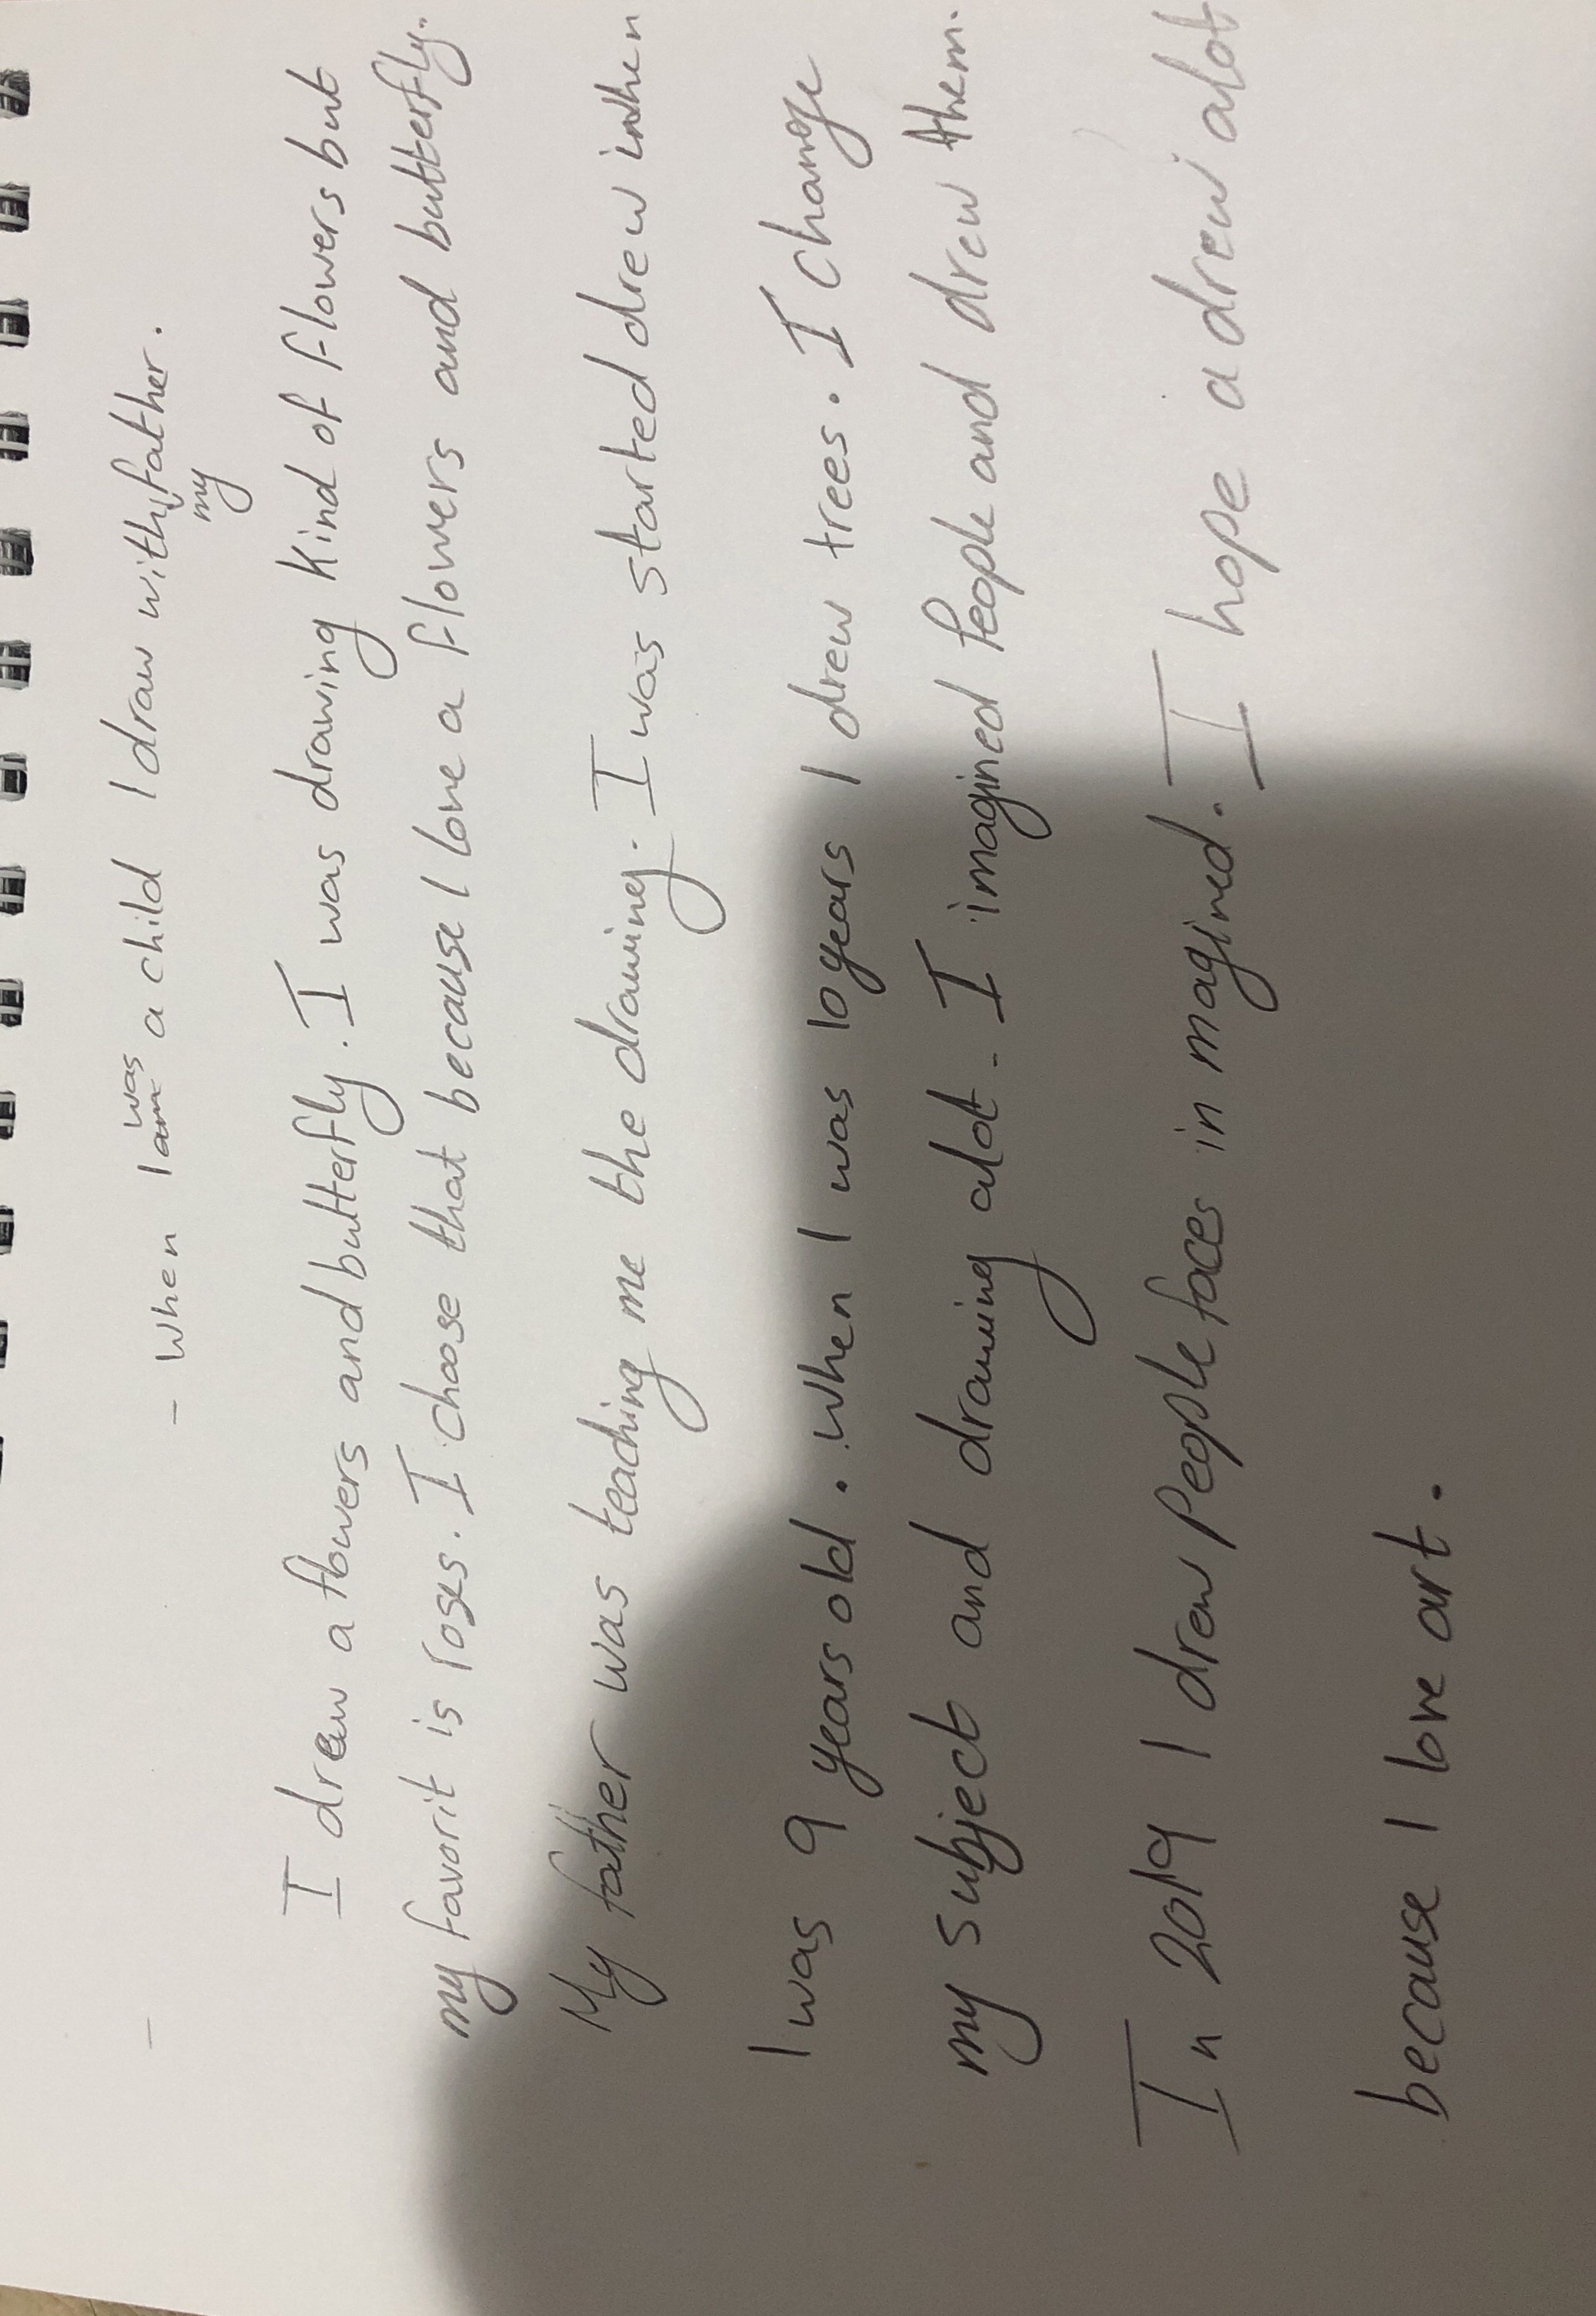 - when I am was a child I draw with my father.
I drew a flowers and butterfly. I was drawing kind of flowers but
my favorit is roses. I choose that because I love a flowers and butterfly.
My father was teaching me the drawing. I was started drew when
I was 9 years old. when I was 10 years I drew trees. I change
my subject and drawing alot. I imagined People and drew them.
In 2019 I drew People faces in magined. I hope a drew alot
because I love art.